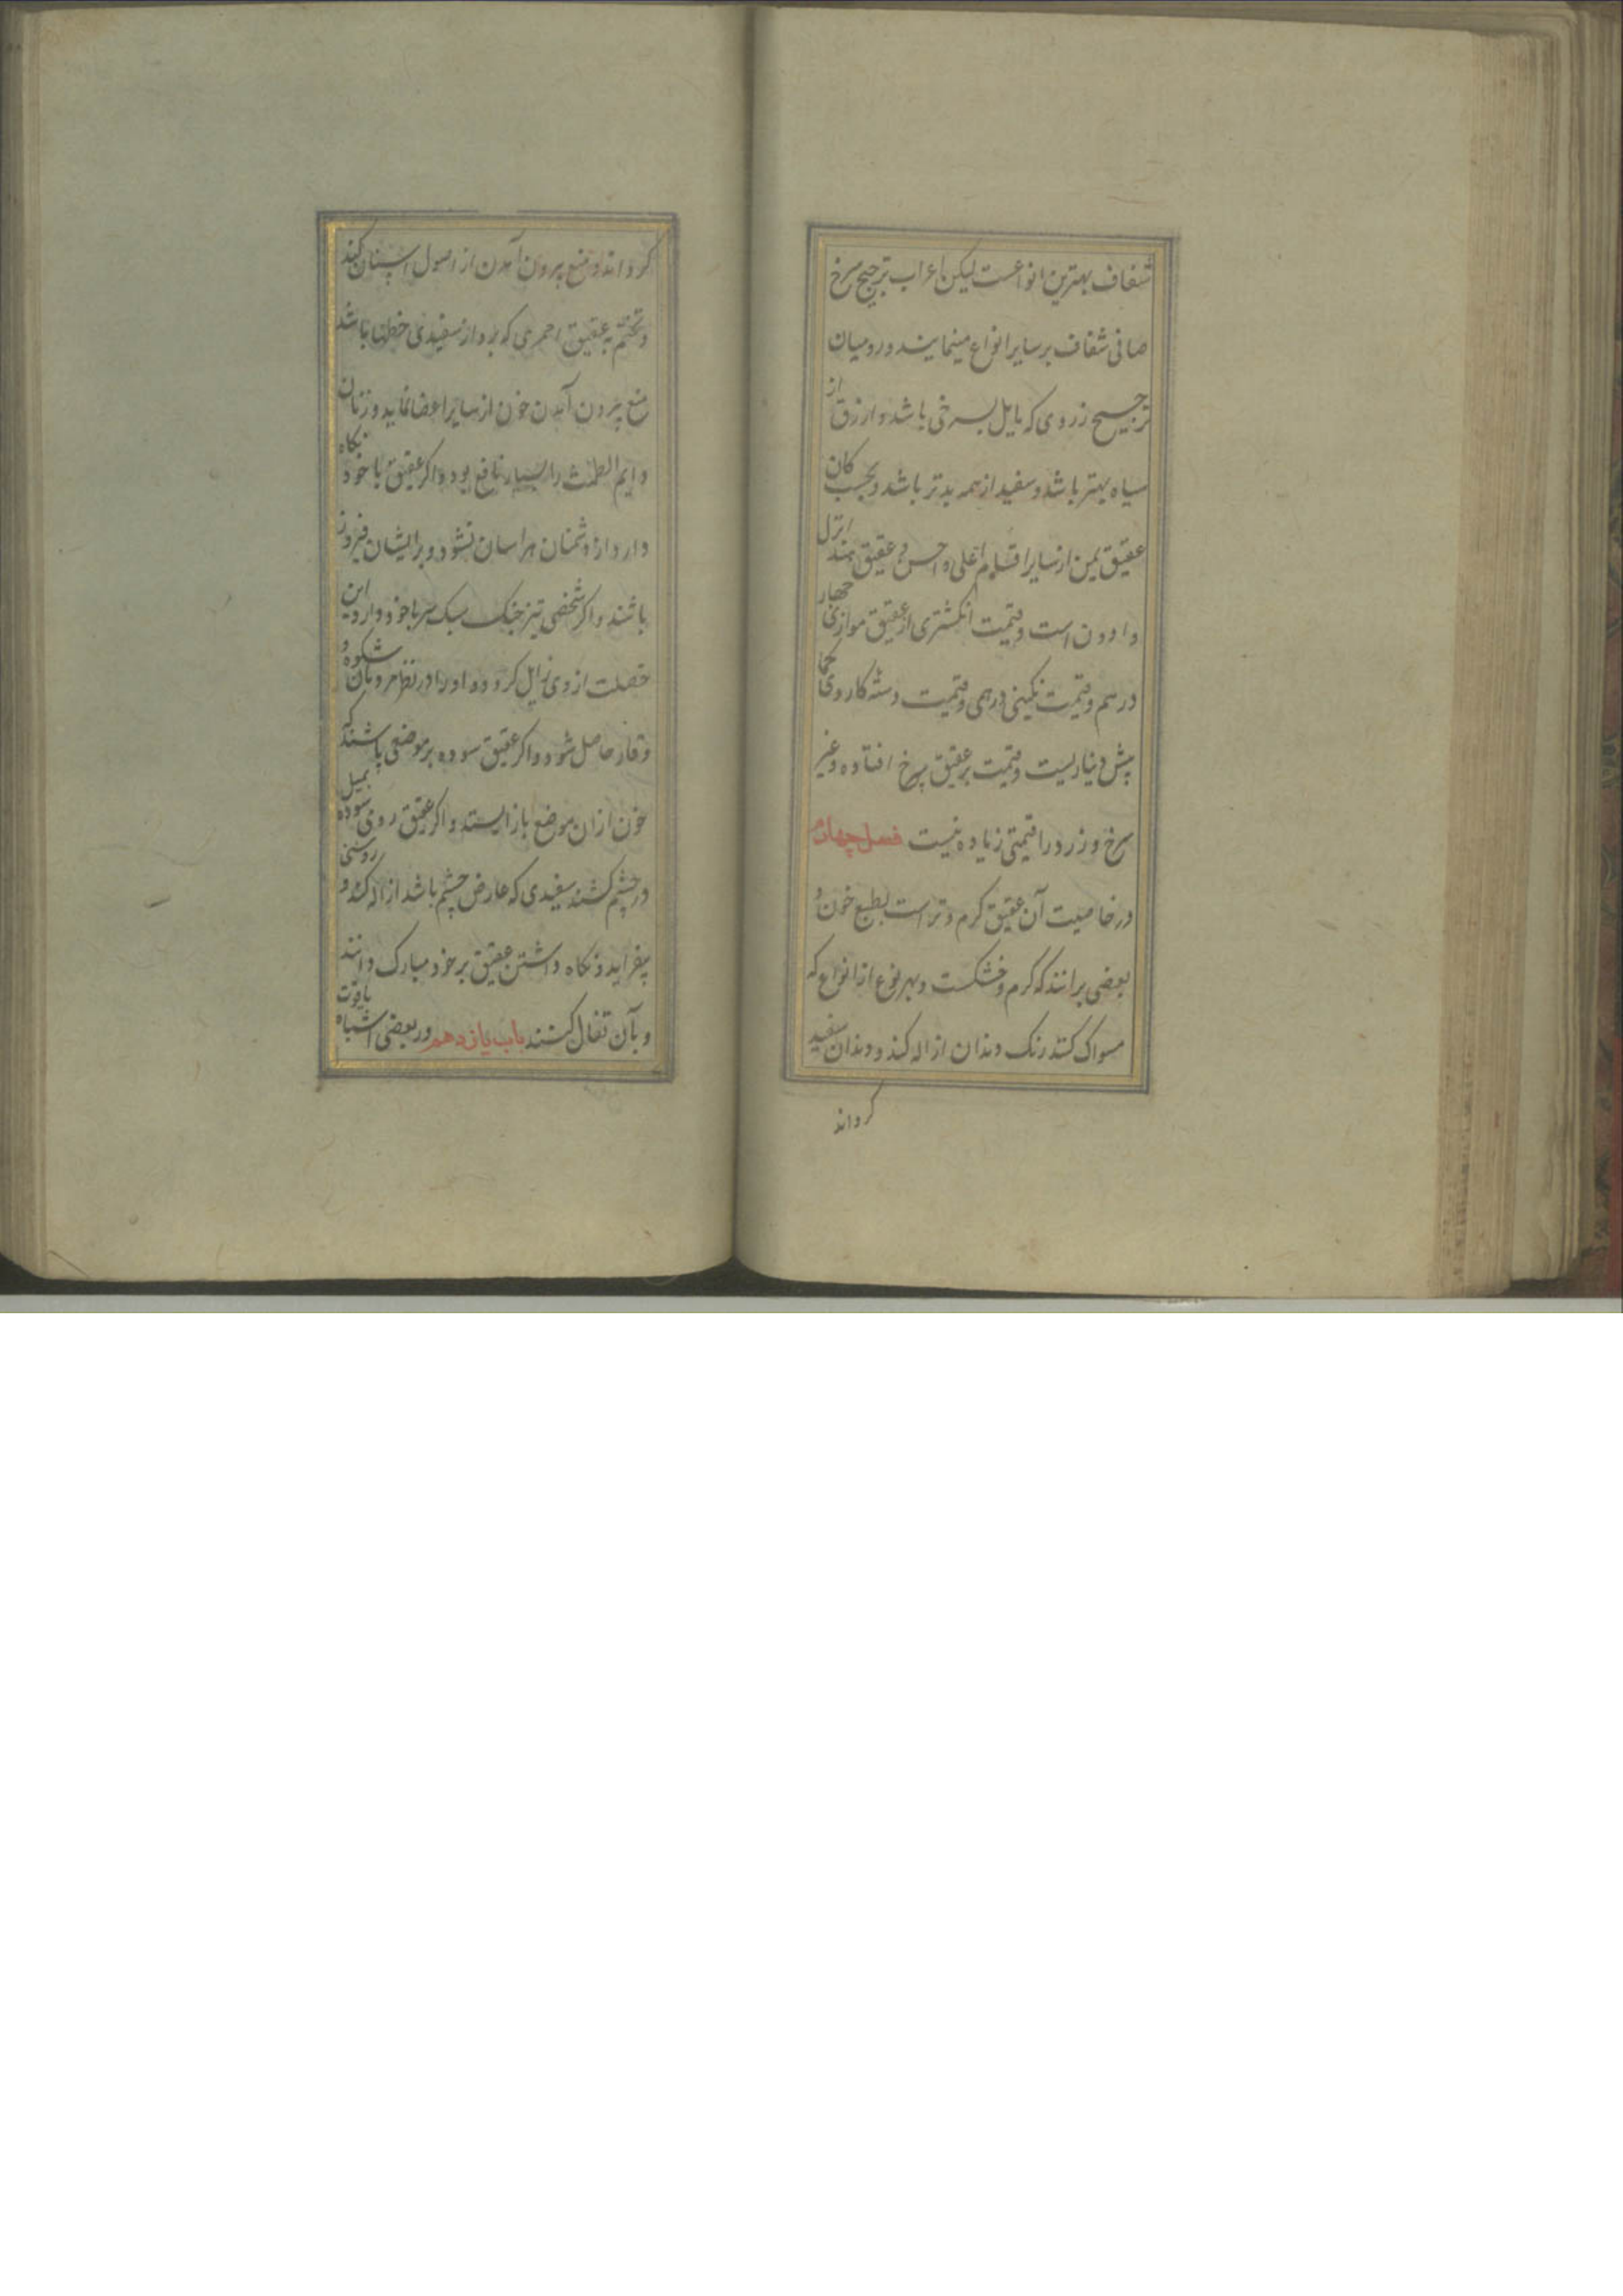 شفاف بهترین انواعست لیکن اعراب ترجیح سرخ
صافی شفاف بر سایر انواع مینمایند و رومیان
ترجیح زردی که مایل بسرخی باشد و ازرق از
سیاه بهتر باشد و سفید از همه بدتر باشد و بحسب کان
عقیق یمن از سایر اقسام اعلی و احسن و عقیق هند انزل
و ادون است و قیمت انکشتری از عقیق موازی چهار
درهم و قیمت نکینی درهمی و قیمت دسته کاردی
پیش دیناریست و قیمت بر عقیق سرخ افتاده و غیر
سرخ و زرد را قیمتی زیاده نیست فصل چهارم
در خاصیت آن عقیق کرم و تر است بطبع خون و
بعضی برانند که کرم و خشکست و بهر نوع از انواع که
مسواک کنند رنک دندان ازاله کند و دندان سفید
کرداند
کرداند و منع بیرون آمدن از اصول اسنان کند
و تختم به عقیق احمری که برو از سفیدی خطها باشد
منع بیرون آمدن خون از سایر اعضا نماید و زنان
دایم الطمث را بسیار نافع بود و اکر عقیق با خود نکاه
دارد از دشمنان هراسان نشود و بر ایشان فیروز
باشند و اکر شخصی تیز جنک سبک سر با خود دارد این
خصلت از وی زایل کردد و او را در نظر مردمان شکوه و
وقار حاصل شود و اکر عقیق سوده بر موضعی پاشند که
خون ازان موضع باز ایستد و اکر عقیق سوده بمیل
در چشم کشند سفیدی که عارض چشم باشد ازاله کند و روشنی
بیفزاید و نکاه داشتن عقیق بر خود مبارک دانند
و بآن تفال کنند باب یازدهم در بعضی اشباه یاقوت